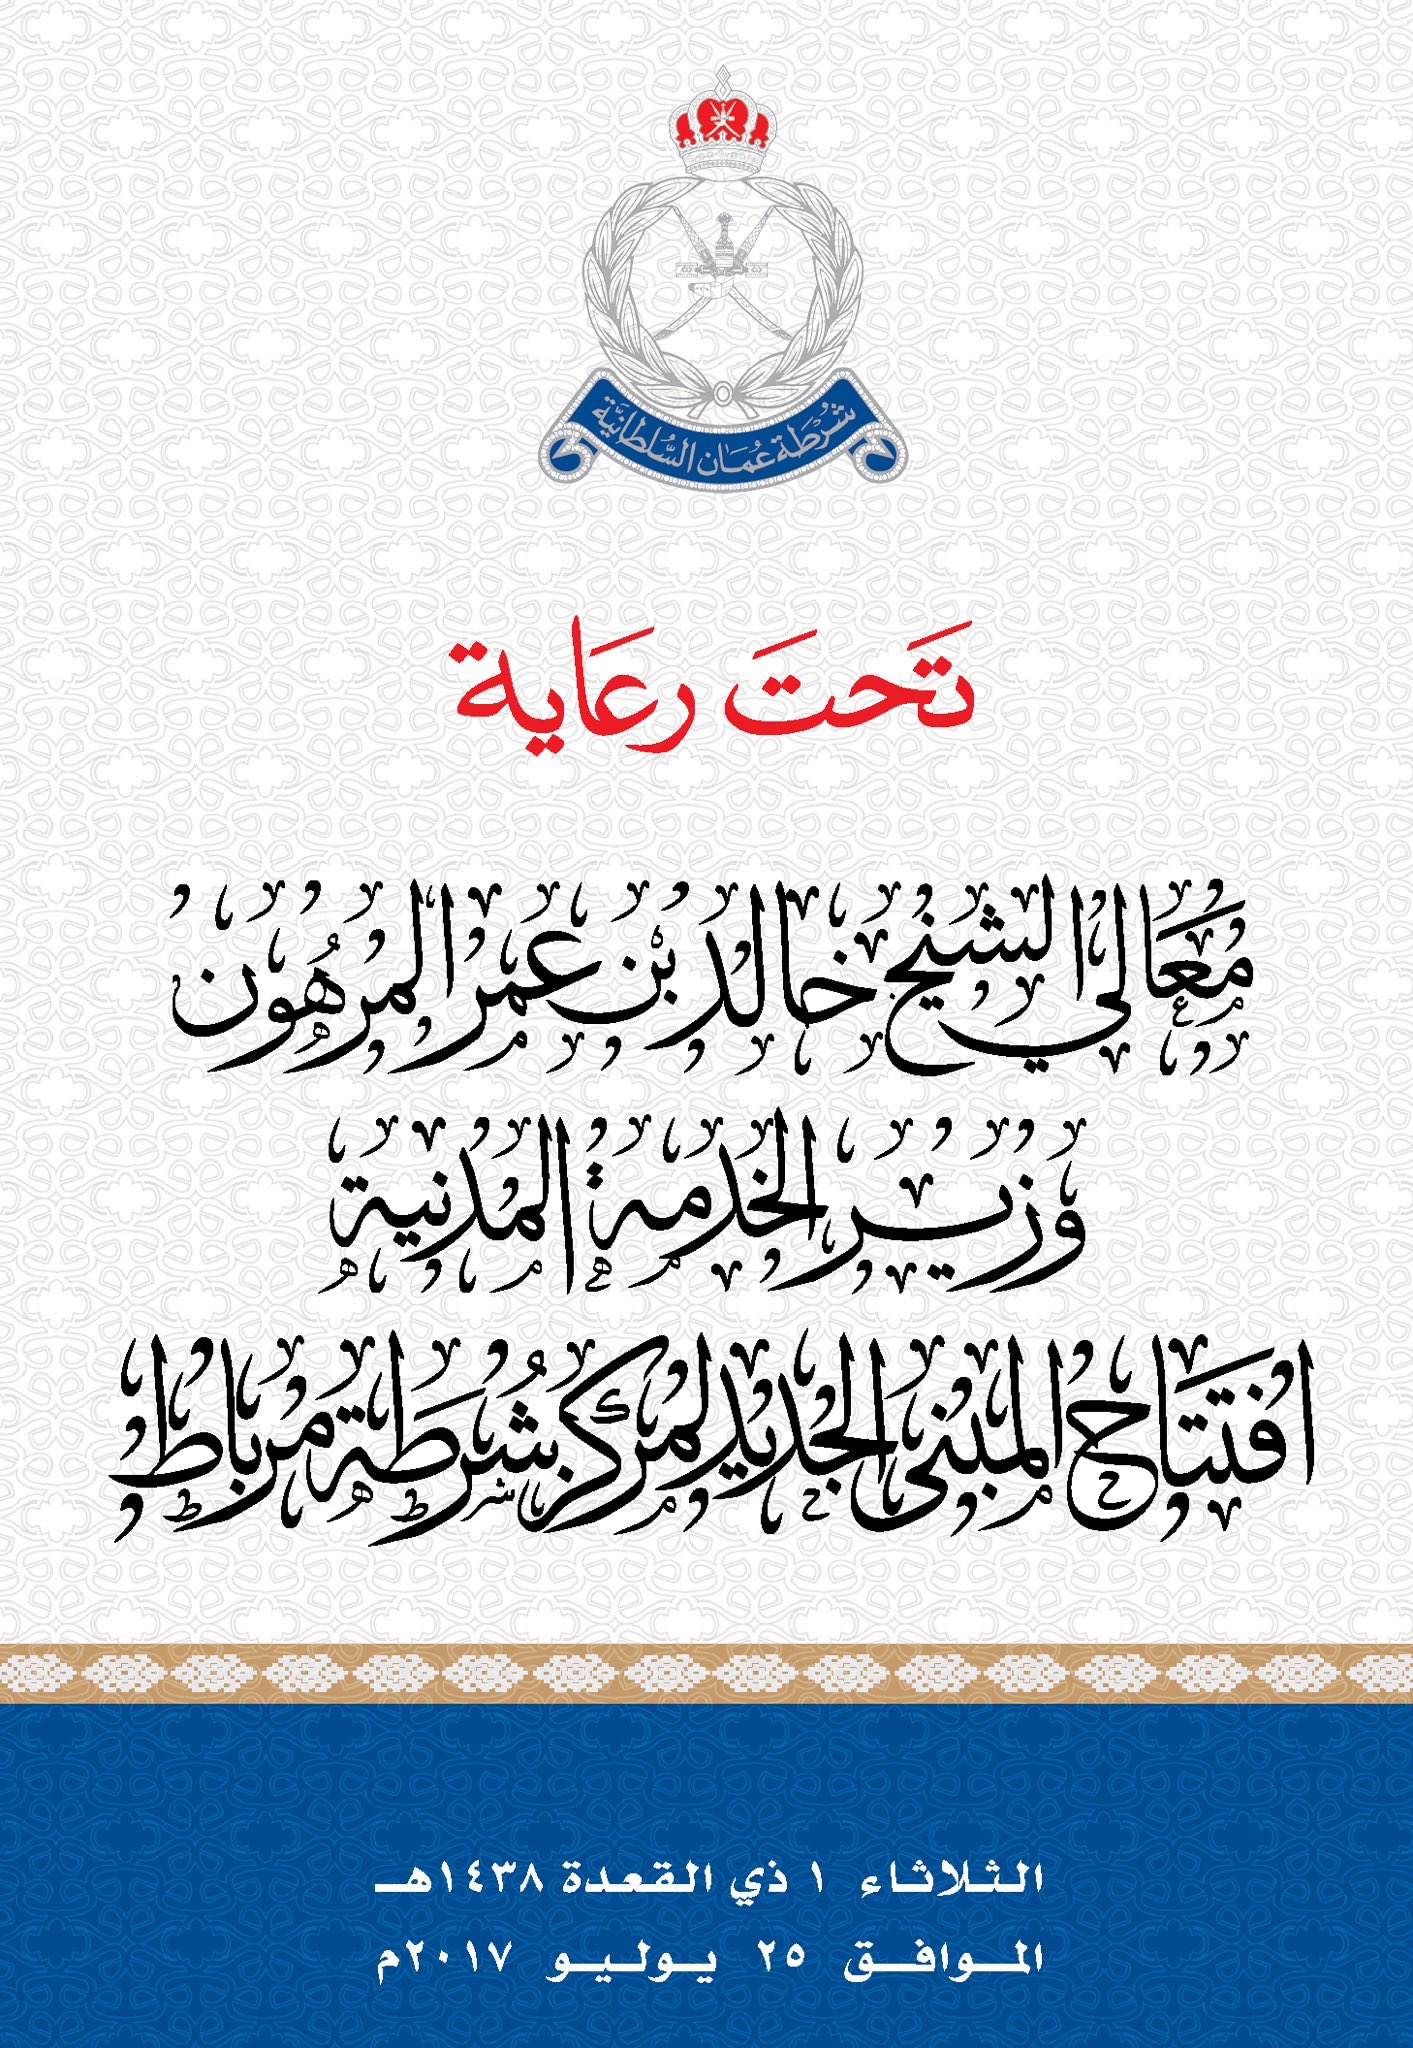 شُرْطَة عُمَان السُّلطَانيَّة
تَحتَ رعَاية
مَعَالي الشيخ خالد بْن عمر المرهُون
وزير الخدمة المدنية
افتتاح المبنى الجديد لمركز شُرطَة مرباط
الثلاثاء ١ ذي القعدة ١٤٣٨هـ
الموافق ٢٥ يوليو ٢٠١٧م